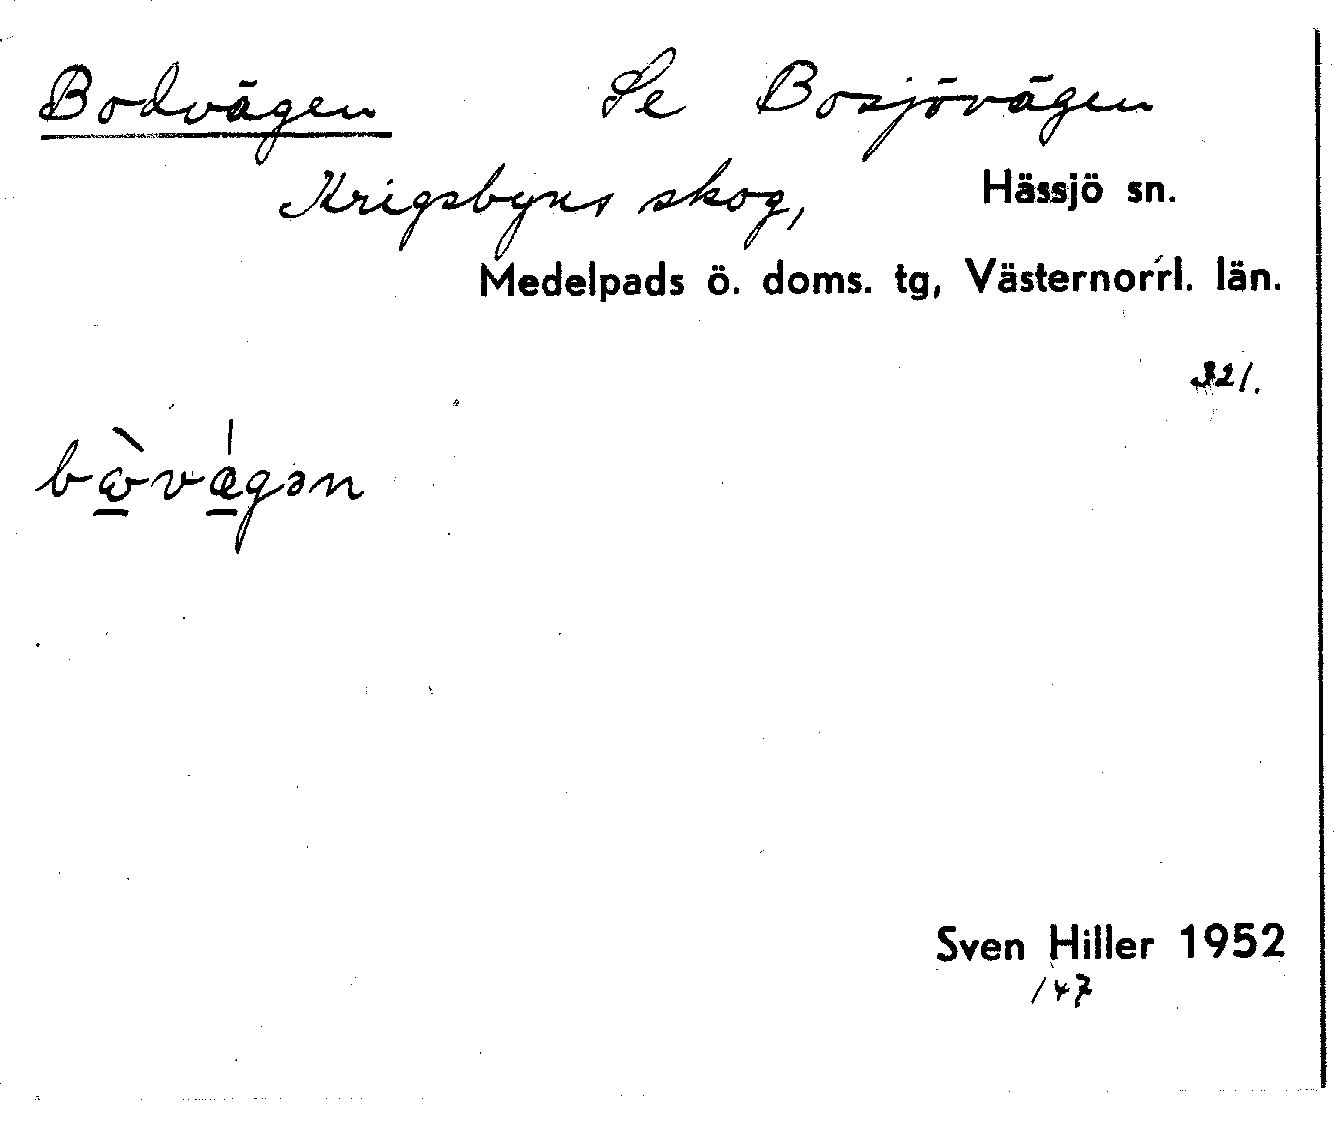 Bodvägen Se Bosjövägen
Krigsbyns skog, Hässjö sn.
Medelpads ö. doms. tg, Västernorrl. län.
321.
bɷ̠̀vǽ̠gən
Sven Hiller 1952
147